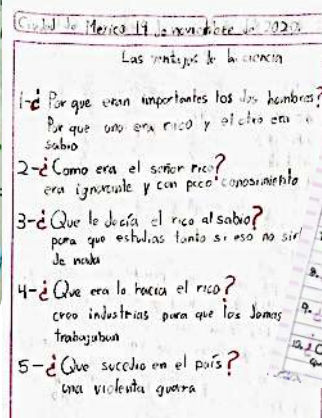 Ciudad de Mexico 19 de noviembre de 2020.
Las ventajas de la ciencia
1-¿ Por que eran importantes los dos hombres?
Por que uno era rico y el otro era
sabio
2-¿Como era el señor rico?
era ignorante y con poco conosimiento
3-¿Que le decía el rico al sabio?
para que estudias tanto si eso no sir
de nada
4-¿Que era lo hacia el rico?
creo industrias para que los demas
trabajaban
5-¿Que sucedio en el país?
una violenta guerra
8.
9.
10.